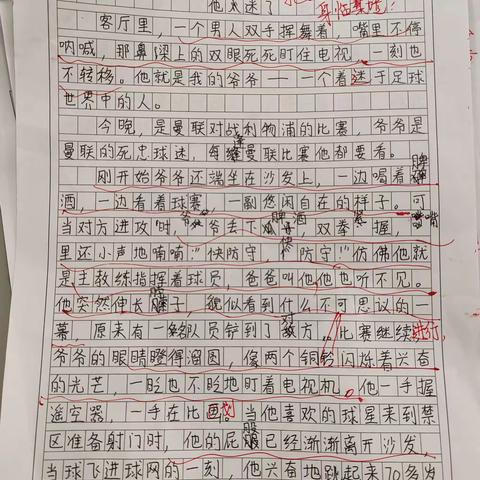 他太迷了
身临其境!
客厅里，一个男人双手挥舞着，嘴里不停
呐喊，那鼻梁上的双眼死死盯住电视，一刻也
不转移。他就是我的爷爷——一个着迷于足球
世界中的人。
今晚，是曼联对战利物浦的比赛，爷爷是
曼联的死忠球迷，每逢曼联比赛他都要看。
刚开始爷爷还端坐在沙发上，一边喝着啤
酒，一边看着球赛，一副悠闲自在的样子。可
当对方进攻时，爷爷放下啤酒，双拳紧握，嘴
里还小声地喃喃:“快防守，快防守!”仿佛他就
是主教练指挥着球员，爸爸叫他他也听不见。
他突然伸长脖子，貌似看到什么不可思议的一
幕，原来有一名队员铲到了对方，比赛继续进行，
爷爷的眼睛瞪得溜圆，像两个铜铃闪烁着兴奋
的光芒，一眨也不眨地盯着电视机。他一手握
遥控器，一手在比画。当他喜欢的球星来到禁
区准备射门时，他的屁股已经渐渐离开沙发，
当球飞进球网的一刻，他兴奋地跳起来70多岁